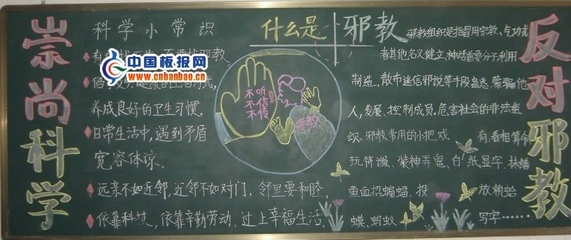 崇尚科学
科学小常识
中国板报网
www.cnbanbao.cn
养成良好的卫生习惯.
日常生活中,遇到矛盾
宽容体谅.
远亲不如近邻,近邻不如对门,邻里要和睦.
依靠科技,依靠辛勤劳动,过上幸福生活.
什么是邪教
不听
不信
不传
邪教
邪教组织是指冒用宗教、气功或
者其他名义建立,神话首要分子,利用
制造、散布迷信邪说等手段蛊惑、蒙骗他
人,发展、控制成员,危害社会的非法组
织.邪教常用的小把戏有,看相算命
写字……
反对邪教